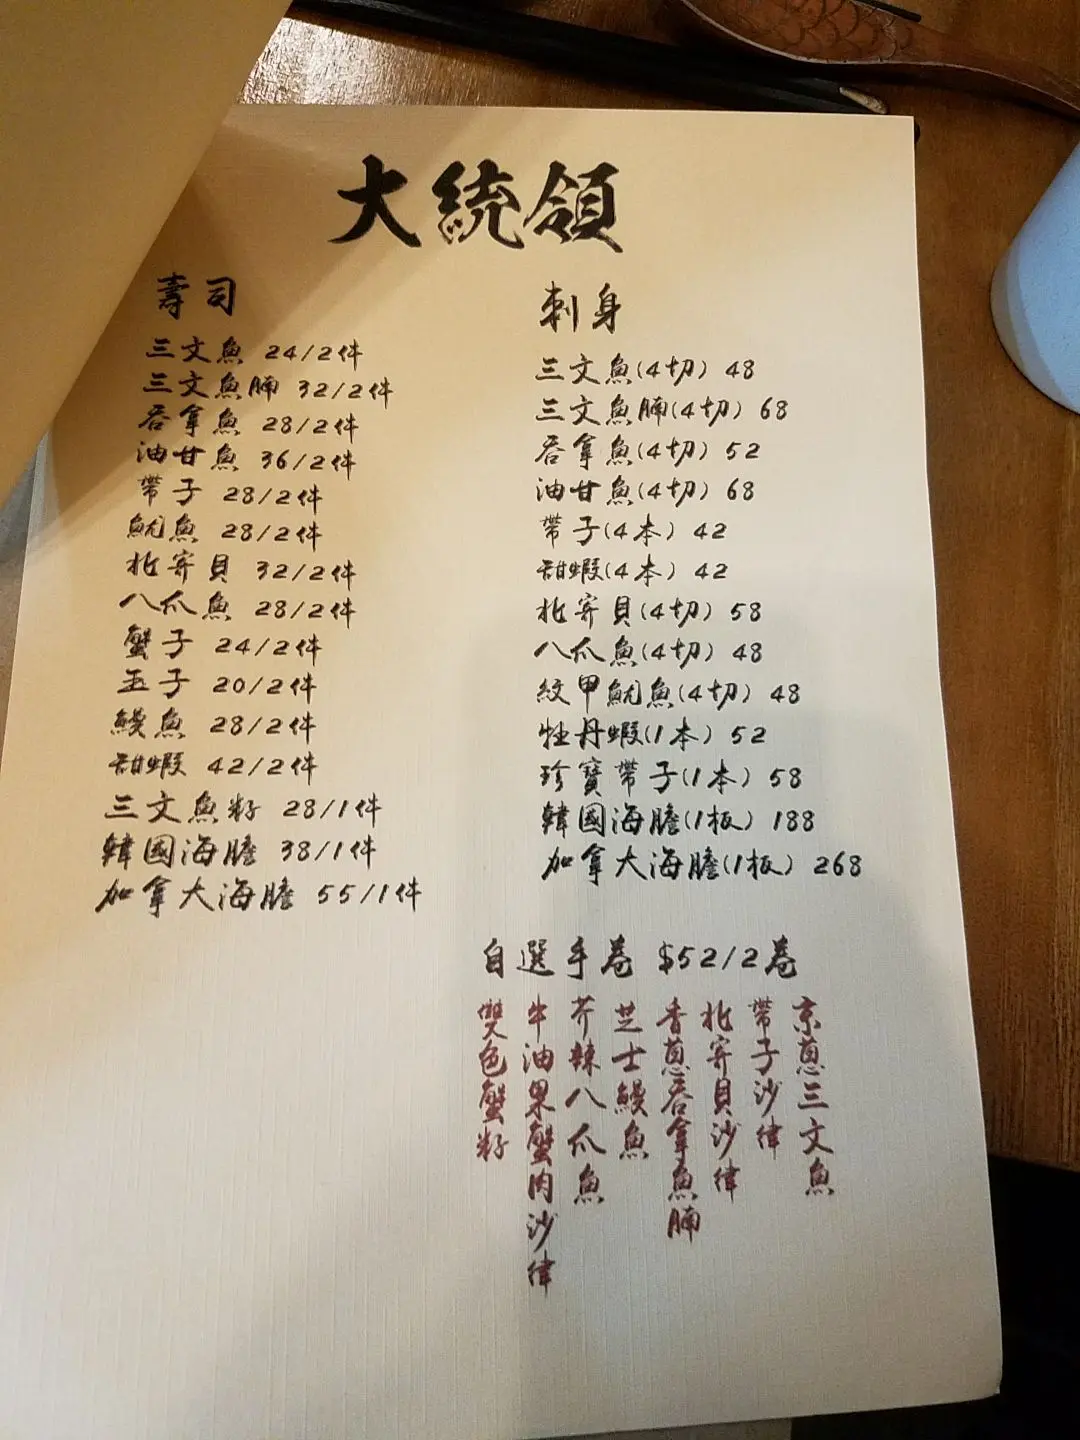 大統領
壽司
三文魚 24/2件
三文魚腩 32/2件
吞拿魚 28/2件
油甘魚 36/2件
帶子 28/2件
魷魚 28/2件
北寄貝 32/2件
八爪魚 28/2件
蟹子 24/2件
玉子 20/2件
鰻魚 28/2件
甜蝦 42/2件
三文魚籽 28/1件
韓國海膽 38/1件
加拿大海膽 55/1件
刺身
三文魚(4切) 48
三文魚腩(4切) 68
吞拿魚(4切) 52
油甘魚(4切) 68
帶子(4本) 42
甜蝦(4本) 42
北寄貝(4切) 58
八爪魚(4切) 48
紋甲魷魚(4切) 48
牡丹蝦(1本) 52
珍寶帶子(1本) 58
韓國海膽(1板) 188
加拿大海膽(1板) 268
自選手卷 $52/2卷
京蔥三文魚
帶子沙律
北寄貝沙律
香蔥吞拿魚腩
芝士鰻魚
芥辣八爪魚
牛油果蟹肉沙律
雙色蟹籽